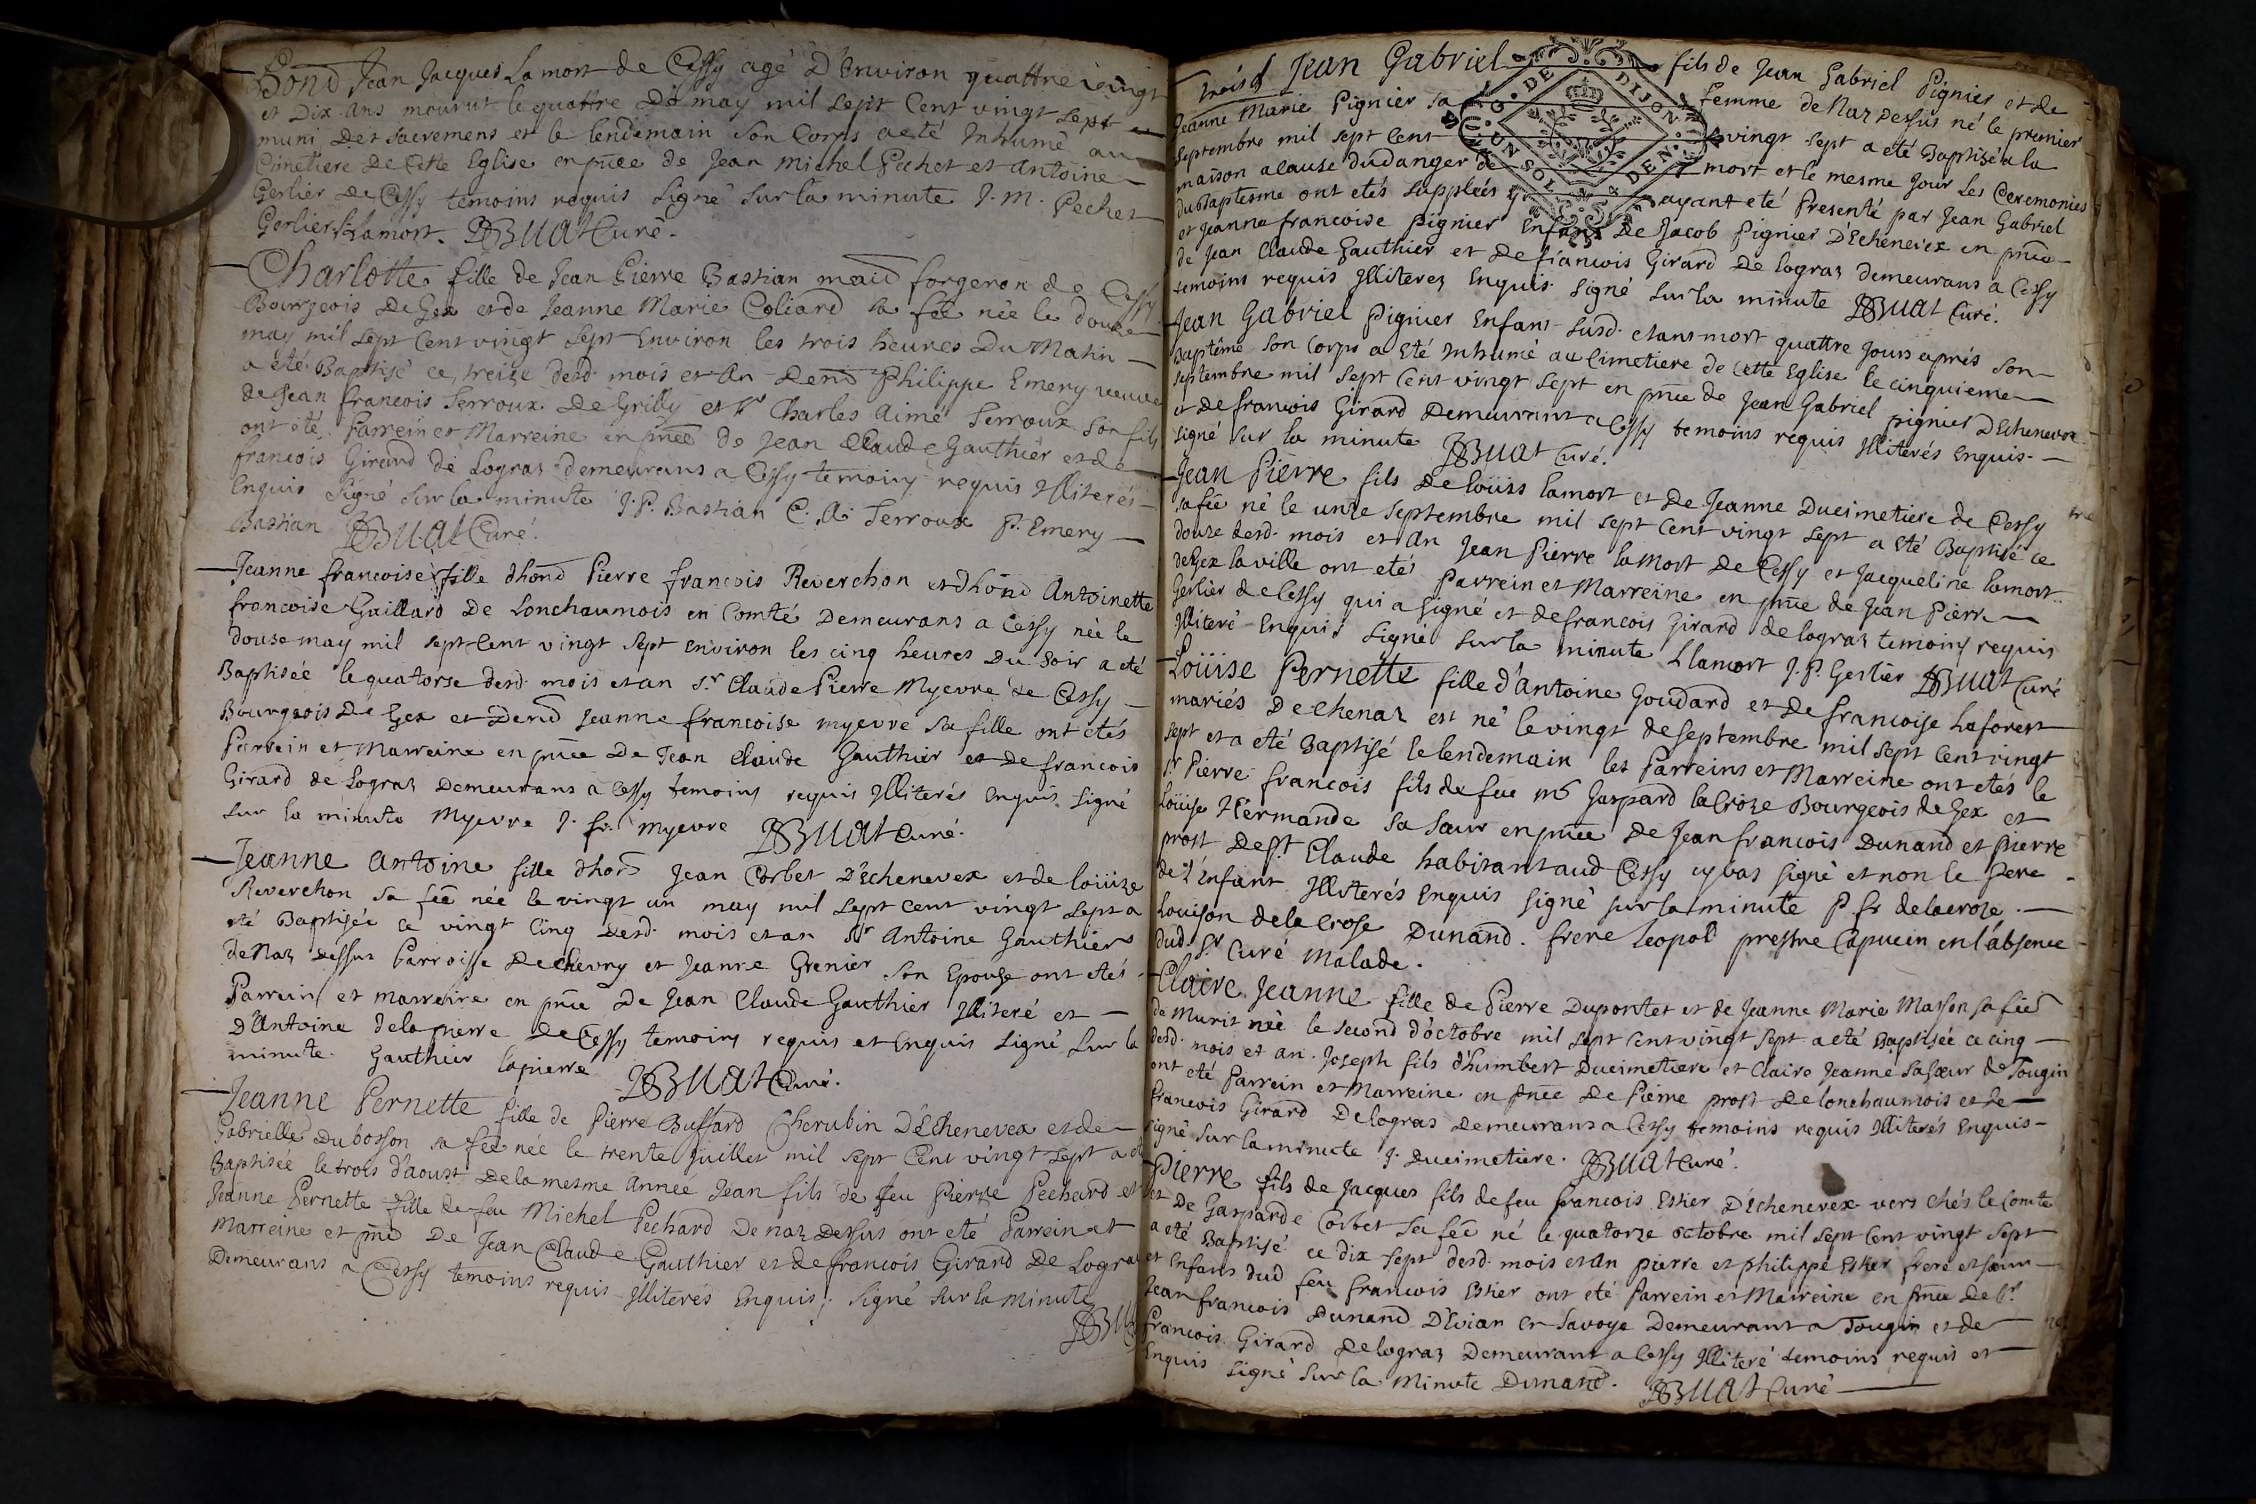 hond Jean Jacques Lamort de Cessy agé D'Environ quattre vingt
et Dix ans mourut le quattre Du may mil sept Cent vingt sept
muni des sacremens et le lendemain son Corps a eté Inhumé au
Cimetiere de Cette Eglise en pnce de Jean Michel Pechet et Antoine
Gerlier de Cessy temoins requis Signé sur la minute J. M. Pechet
Gerlier Lamort. Buat Curé.
Charlotte fille de Jean Pierre Bastian forgeron de Cessy
Bourgeois de Gex et de Jeanne Marie Coliard sa fée née le douze
may mil sept Cent vingt sept Environ les trois heures Du Matin
a eté Baptisé ce treize desd. mois et An Philippe Emery veuve
de Jean francois Serroux De Grilly et Sr Charles Aimé Serroux son fils
ont eté Parrein et Marreine en pnce de Jean Claude Gauthier et de
francois Girard de Logras demeurans a Cessy temoins requis Illiterés
Enquis Signé sur la minute J. P. Bastian C. A. Serroux P. Emery
Bastian Buat Curé.
Jeanne francoise fille dhond Pierre francois Reverchon et dhond Antoinette
francoise Gaillard De Lonchaumois en Comté Demeurans a Cessy née le
douse may mil sept Cent vingt sept environ les cinq heures du soir a eté
Baptisée le quatorse desd. mois et an Sr. Claude Pierre Myevre de Cessy
Bourgeois De Gex et Jeanne francoise myevre sa fille ont etés
Parrein et Marreine en pnce De Jean Claude Gauthier et de francois
Girard de Logras Demeurans a Cessy temoins requis Illiterés enquis. Signé
sur la minute Myevre J. fr. Myevre Buat Curé.
Jeanne Antoine fille dhond Jean Corbet D'Echenevex et de Loüize
Reverchon sa fée née le vingt un may mil sept cent vingt sept a
eté Baptisée ce vingt Cinq desd. mois et an Sr Antoine Gauthier
de Naz dessus Parroisse de Chevry et Jeanne Grenier son Epouse ont etés
Parrein et marreine en pnce De Jean Claude Gauthier Illiteré et
D'Antoine de lapierre de Cessy temoins requis et Enquis Signé sur la
minute Gauthier lapierre Buat Curé.
Jeanne Pernette fille de Pierre Buffard Cherubin D'Echenevex et de
Gabrielle Dubosson sa fée née le trente juillet mil sept Cent vingt sept a eté
Baptisée le trois d'aoust De la mesme Année Jean fils de feu Pierre Pechard et
Jeanne Pernette fille de feu Michel Pechard De naz Dessus ont eté Parrein et
Marreine et pnce De Jean Claude Gauthier et de francois Girard De Logras
Demeurans a Cessy temoins requis illiterés Enquis. Signé sur la minute
Buat
trois d
Jean Gabriel fils de Jean Gabriel Pignier et de
Jeanne Marie Pignier sa femme de Naz Dessus né le premier
Septembre mil sept Cent vingt sept a eté Baptisé a la
maison a cause du danger de mort et le mesme jour les Ceremonies
du baptesme ont etés supplées ayant eté Presenté par Jean Gabriel
et Jeanne francoise Pignier Enfans De Jacob Pignier D'Echenevex en pnce
de Jean Claude Gauthier et De francois Girard De Logras demeurans a Cessy
temoins requis Illiterez Enquis. Signé sur la minute Buat Curé.
G. DE DIJON CONSOL. 4 DEN.
Jean Gabriel Pignier Enfant susd. etant mort quattre jours aprés son
Baptême son Corps a eté Inhumé au Cimetiere de cette Eglise le cinquieme
septembre mil sept Cent vingt sept en pnce de Jean Gabriel pignier D'Echenevex
et de francois Girard Demeurant a Cessy temoins requis Illiterés Enquis.
Signé sur la minute Buat Curé.
Jean Pierre fils De Loüis lamort et De Jeanne Ducimetiere de Cessy
sa fée né le unze Septembre mil sept Cent vingt sept a eté Baptisé ce
douse desd. mois et An Jean Pierre lamort de Cessy et Jacqueline lamort
de Gex la ville ont etés Parrein et Marreine en pnce de Jean Pierre
Gerlier de Cessy qui a signé et de francois Girard de logras temoins requis
Illiteré Enquis Signé sur la minute Llamort J. P. Gerlier Buat Curé
Loüise Pernette fille d'Antoine Goudard et de francoise Laforest
mariés De Chenaz est né le vingt de septembre mil sept Cent vingt
sept et a eté Baptisé le lendemain les Parreins et Marreine ont etés le
Sr Pierre francois fils de feu Gaspard lacroze Bourgeois de Gex et
Loüise Hermande sa sœur en pnce De Jean francois Dunand et pierre
prost De St. Claude habitant aud Cessy cy bas signé et non le Pere
de l'Enfant Illiterés Enquis Signé sur la minute P fr delacroze.
Louison dela Crose Dunand. frere Leopol prestre Capucin en l'absence
dud. Sr Curé Malade.
Claire Jeanne fille de Pierre Dupontet et de Jeanne Marie Masson sa fée
de Murit née le second d'octobre mil sept Cent vingt sept a eté Baptisée ce cinq
desd. mois et an. Joseph fils d'humbert Ducimetiere et Claire Jeanne sa sœur de Tougin
ont eté Parrein et Marreine en pnce De Pierre prost De lonchaumois et de
francois Girard De logras Demeurans a Cessy temoins requis Illiterés Enquis
signé sur la minute J. Ducimetiere. Buat Curé.
Pierre fils de Jacques fils de feu francois Estier D'Echenevex vers chés le Comte
et De Gasparde Corbet sa fée né le quatorze octobre mil sept Cent vingt sept
a eté Baptisé ce dix sept desd. mois et an pierre et philippe Estier frere et sœur
et Enfans dud feu francois Estier ont eté Parrein et Marreine en pnce De Sr.
Jean francois Dunand D'Evian en Savoye Demeurant a Tougin et de
francois Girard De logras Demeurant a Cessy Illiteré temoins requis et
Enquis Signé sur la Minute Dunand. Buat Curé